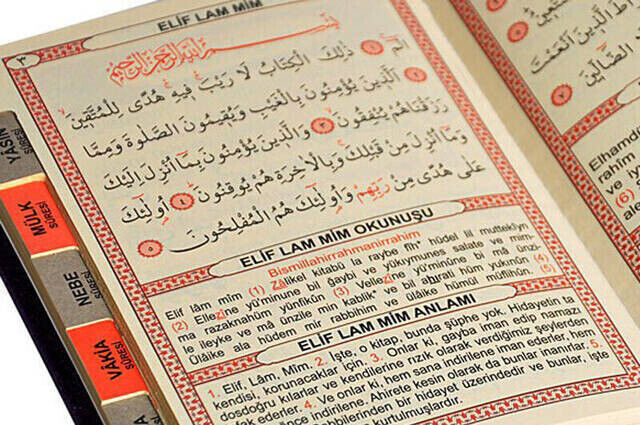 ELİF LAM MİM
٣
بِسْمِ اللّٰهِ الرَّحْمٰنِ الرَّحِيمِ
الٓمٓ ١ ذٰلِكَ الْكِتَابُ لَا رَيْبَ فِيهِ هُدًى لِلْمُتَّقِينَ
٢ اَلَّذِينَ يُؤْمِنُونَ بِالْغَيْبِ وَيُقِيمُونَ الصَّلٰوةَ وَمِمَّا
رَزَقْنَاهُمْ يُنْفِقُونَ ٣ وَالَّذِينَ يُؤْمِنُونَ بِمَٓا اُنْزِلَ اِلَيْكَ
وَمَٓا اُنْزِلَ مِنْ قَبْلِكَ وَبِالْاٰخِرَةِ هُمْ يُوقِنُونَ ٤ اُولٰٓئِكَ
عَلٰى هُدًى مِنْ رَبِّهِمْ وَاُولٰٓئِكَ هُمُ الْمُفْلِحُونَ ٥
ELİF LAM MİM OKUNUŞU
Bismillahirrahmanirrahim
Elif lâm mîm (1) Zâlikel kitâbü la raybe fîh* hüdel lil mutteklyn
(2) Ellezîne yü'minune bil ğaybi ve yükıymunes salate ve mim-
ma razaknahüm yünfikûn (3) Vellezîne yü'minûne bi mâ ünzi-
le ileyke ve mâ ünzile min kablik* ve bil ahırati hüm yukınûn (4)
Ülâike ala hüdem mir rabbihim ve ülâike hümül müflihûn. (5)
ELİF LAM MİM ANLAMI
1. Elif, Lâm, Mîm. 2. İşte, o kitap, bunda şüphe yok. Hidayetin ta
kendisi, korunacaklar için. 3. Onlar ki, gayba iman edip namazı
dosdoğru kılarlar ve kendilerine rızık olarak verdiğimiz şeylerden
fak ederler. 4. Ve onlar ki, hem sana indirilene iman ederler, hem
önce indirilene. Ahirete kesin olarak da bunlar inanırlar. 5.
Rabblerinden bir hidayet üzerindedir ve bunlar, işte
kurtulmuşlardır.
YASİN
SÛRESİ
MÜLK
SÛRESİ
NEBE
SÛRESİ
VAKIA
SÛRESİ
الَّذِينَ اَنْعَمْتَ
الضَّٓالِّينَ
Elhamd
rahîm
ve iy
(6)